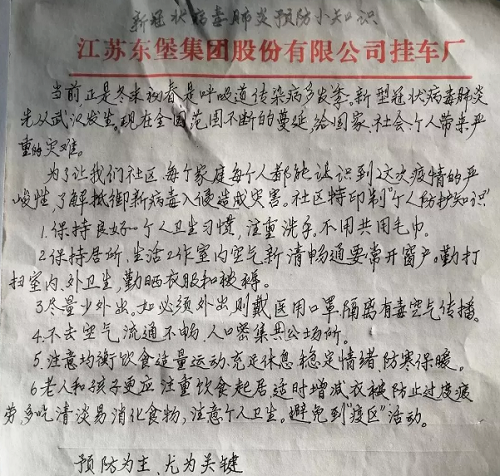 新冠状病毒肺炎预防小知识
江苏东堡集团股份有限公司挂车厂
当前正是冬末初春是呼吸道传染病多发季。新型冠状病毒肺炎
先从武汉发生。现在全国范围不断的蔓延,给国家、社会、个人带来严
重的灾难。
为了让我们社区、每个家庭每个人都能认识到这次疫情的严
峻性,了解抵御新病毒入侵造成灾害。社区特印制“个人防护知识”
1.保持良好个人卫生习惯,注重洗手、不用共用毛巾。
2保持居所,生活工作室内空气新清畅通要常开窗户。勤打
扫室内、外卫生,勤晒衣服和被褥。
3.尽量少外出。如必须外出,则戴医用口罩,隔离有毒空气传播。
4.不去空气流通不畅、人口密集共公场所。
5.注意均衡饮食适量运动充足休息稳定情绪防寒保暖。
6老人和孩子更应注重饮食起居、适时增减衣被防止过度疲
劳,多吃清淡易消化食物,注意个人卫生。避免到“疫区”活动。
预防为主、尤为关键